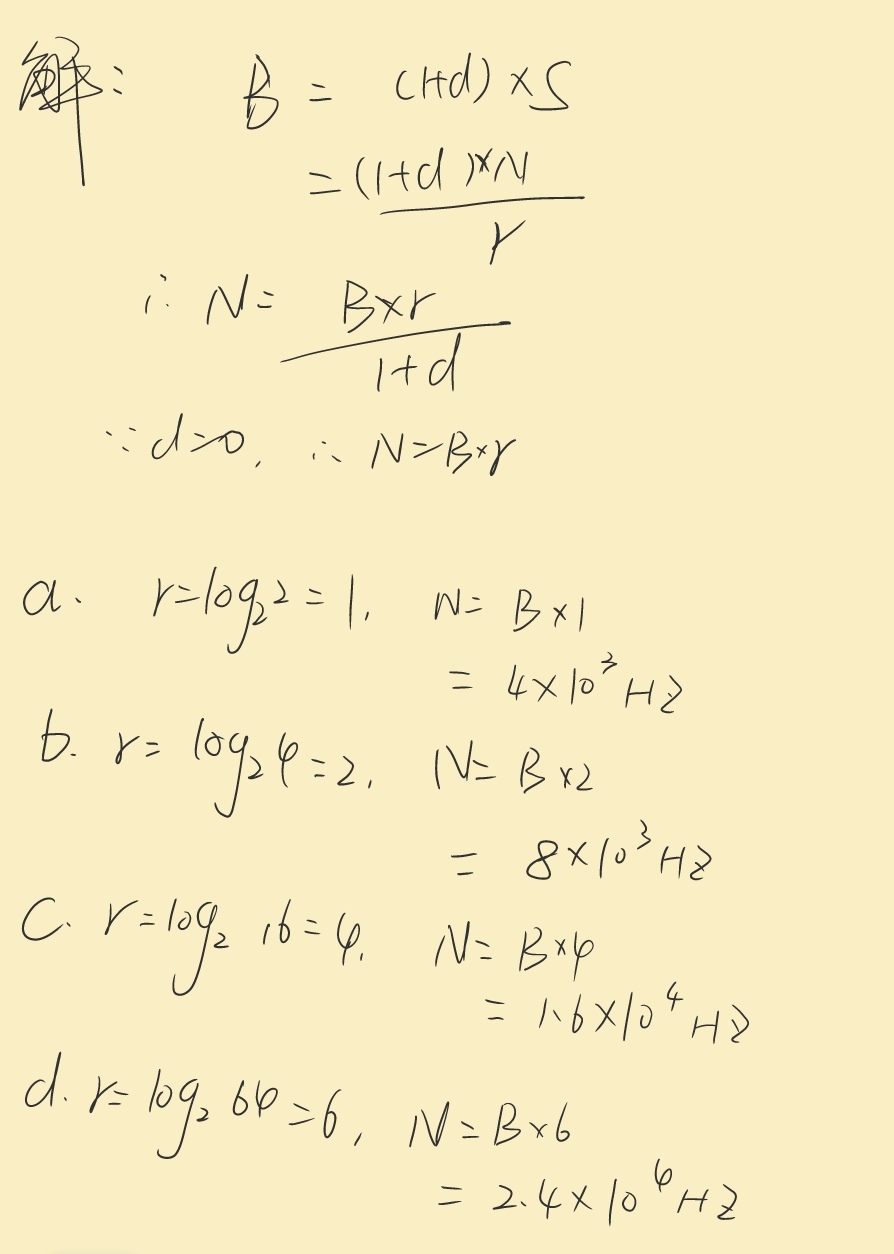 解: B = (1+d) × S
= (1+d) × N / r
∴ N = B×r / 1+d
∵ d=0, ∴ N=B×r
a. r=log₂2=1, N= B×1
= 4×10³ HZ
b. r= log₂4=2, N= B×2
= 8×10³ HZ
C. r=log₂ 16=4, N= B×4
= 1.6×10⁴ HZ
d. r= log₂ 64=6, N=B×6
= 2.4×10⁴ HZ